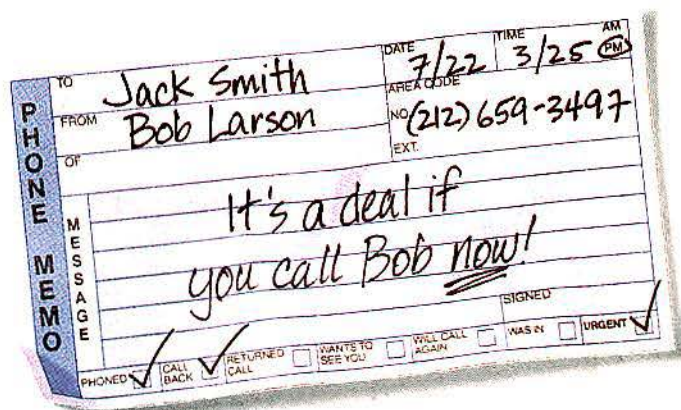 PHONE MEMO
TO Jack Smith
DATE 7/22
TIME 3/25 AM PM
FROM Bob Larson
AREA CODE
NO. (212) 659-3497
OF
EXT.
MESSAGE
It's a deal if
you call Bob now!
SIGNED
PHONED CALL BACK RETURNED CALL WANTS TO SEE YOU WILL CALL AGAIN WAS IN URGENT